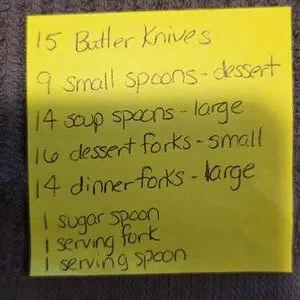 15 Butter Knives
9 small spoons - dessert
14 soup spoons - large
16 dessert forks - small
14 dinner forks - large
1 sugar spoon
1 serving fork
1 serving spoon